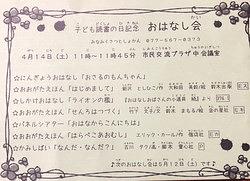 子ども読書の日記念 おはなし会
みなみくさつとしょかん 077-567-0373
4月14日(土) 11時～11時45分 市民交流プラザ 中会議室
☆にんぎょうおはなし「おさるのもんちゃん」
☆おおがたえほん「はじめまして」 新沢 としひこ/作 大和田 美鈴/絵 鈴木出版
☆しかけおはなし「ライオンの檻」
☆おおがたえほん「せんろはつづく」 竹下 文子/文 鈴木 まもる/絵 金の星社
☆パネルシアター「おはなからこんにちは」
☆おおがたえほん「はらぺこあおむし」 エリック・カール/作 偕成社
☆かみしばい「なんだ・なんだ?」 童心社
♪次のおはなし会は5月12日(土)です♪